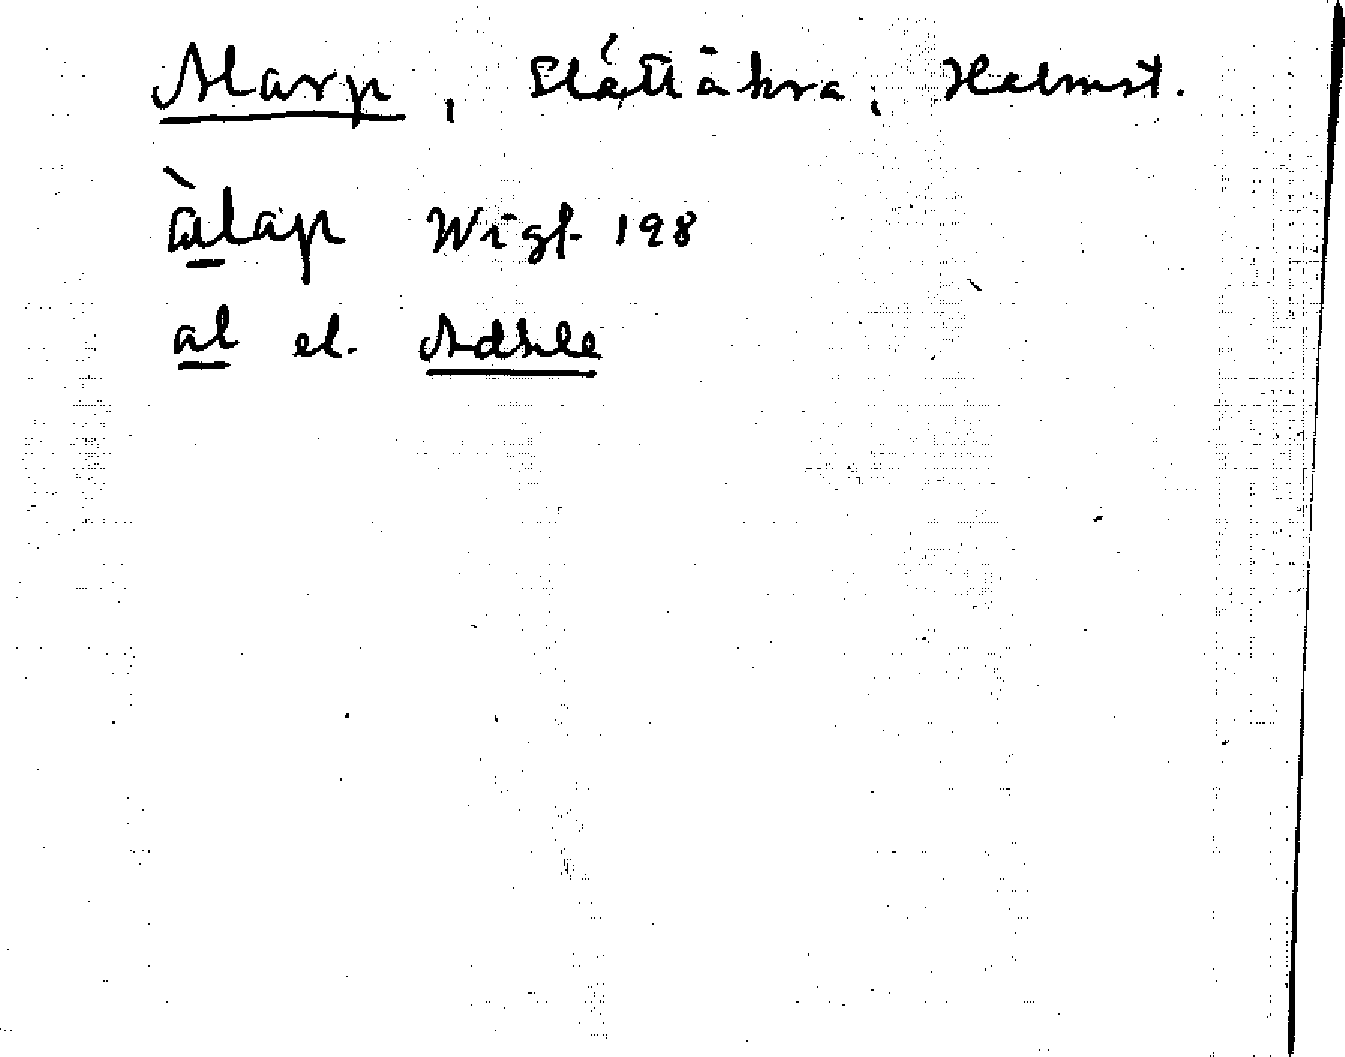 Alarp, Slättåkra, Halmst.
àlap Wigf. 198
al el. Adhle